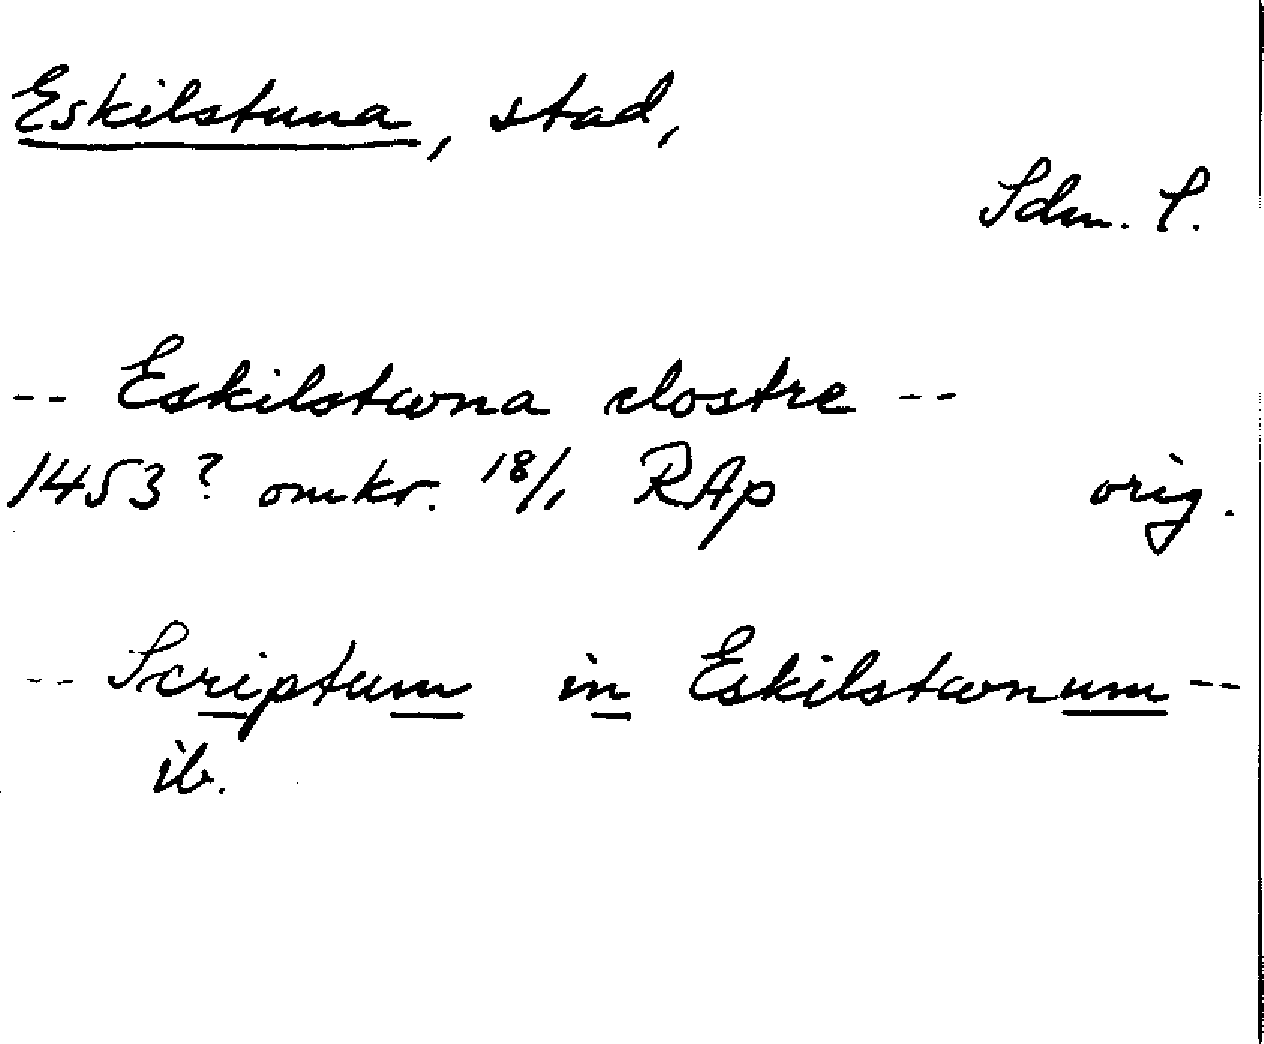 Eskilstuna, stad,
Sdm. L.
-- Eskilstwna clostre --
1453? omkr. 18/1 RAp orig.
-- Scriptum in Eskilstwnum --
ib.